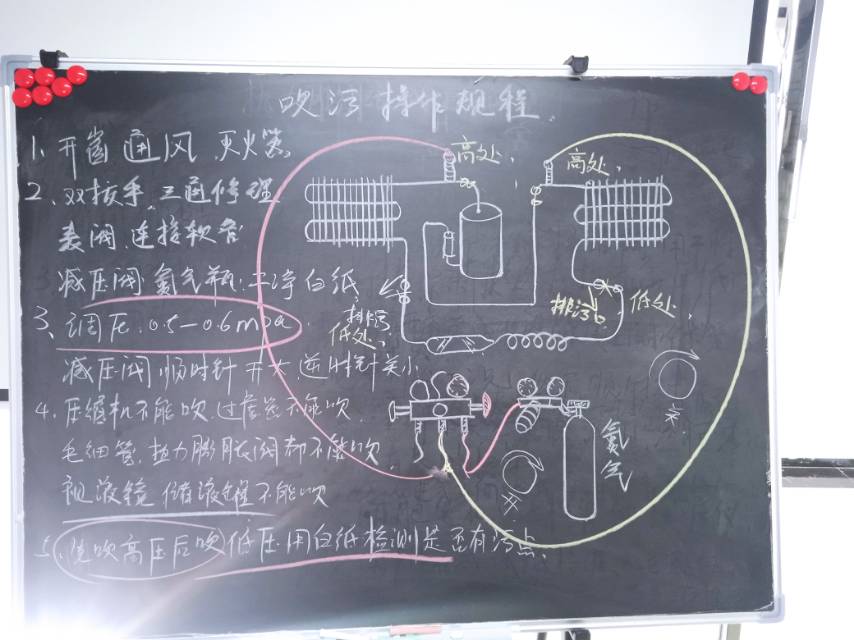 吹污操作规程.
1、开窗通风 灭火器
2、双扳手、三通修理
表阀、连接软管
减压阀、氮气瓶、干净白纸
3、调压.0.5-0.6mpa.
减压阀顺时针开大,逆时针关小
4、压缩机不能吹、过滤器不能吹
毛细管、热力膨胀阀都不能吹.
视液镜 储液罐不能吹
5、先吹高压后吹低压用白纸检测是否有污点.
高处、
高处、
排污口
低处、
排污
低处、
氮气
关
关